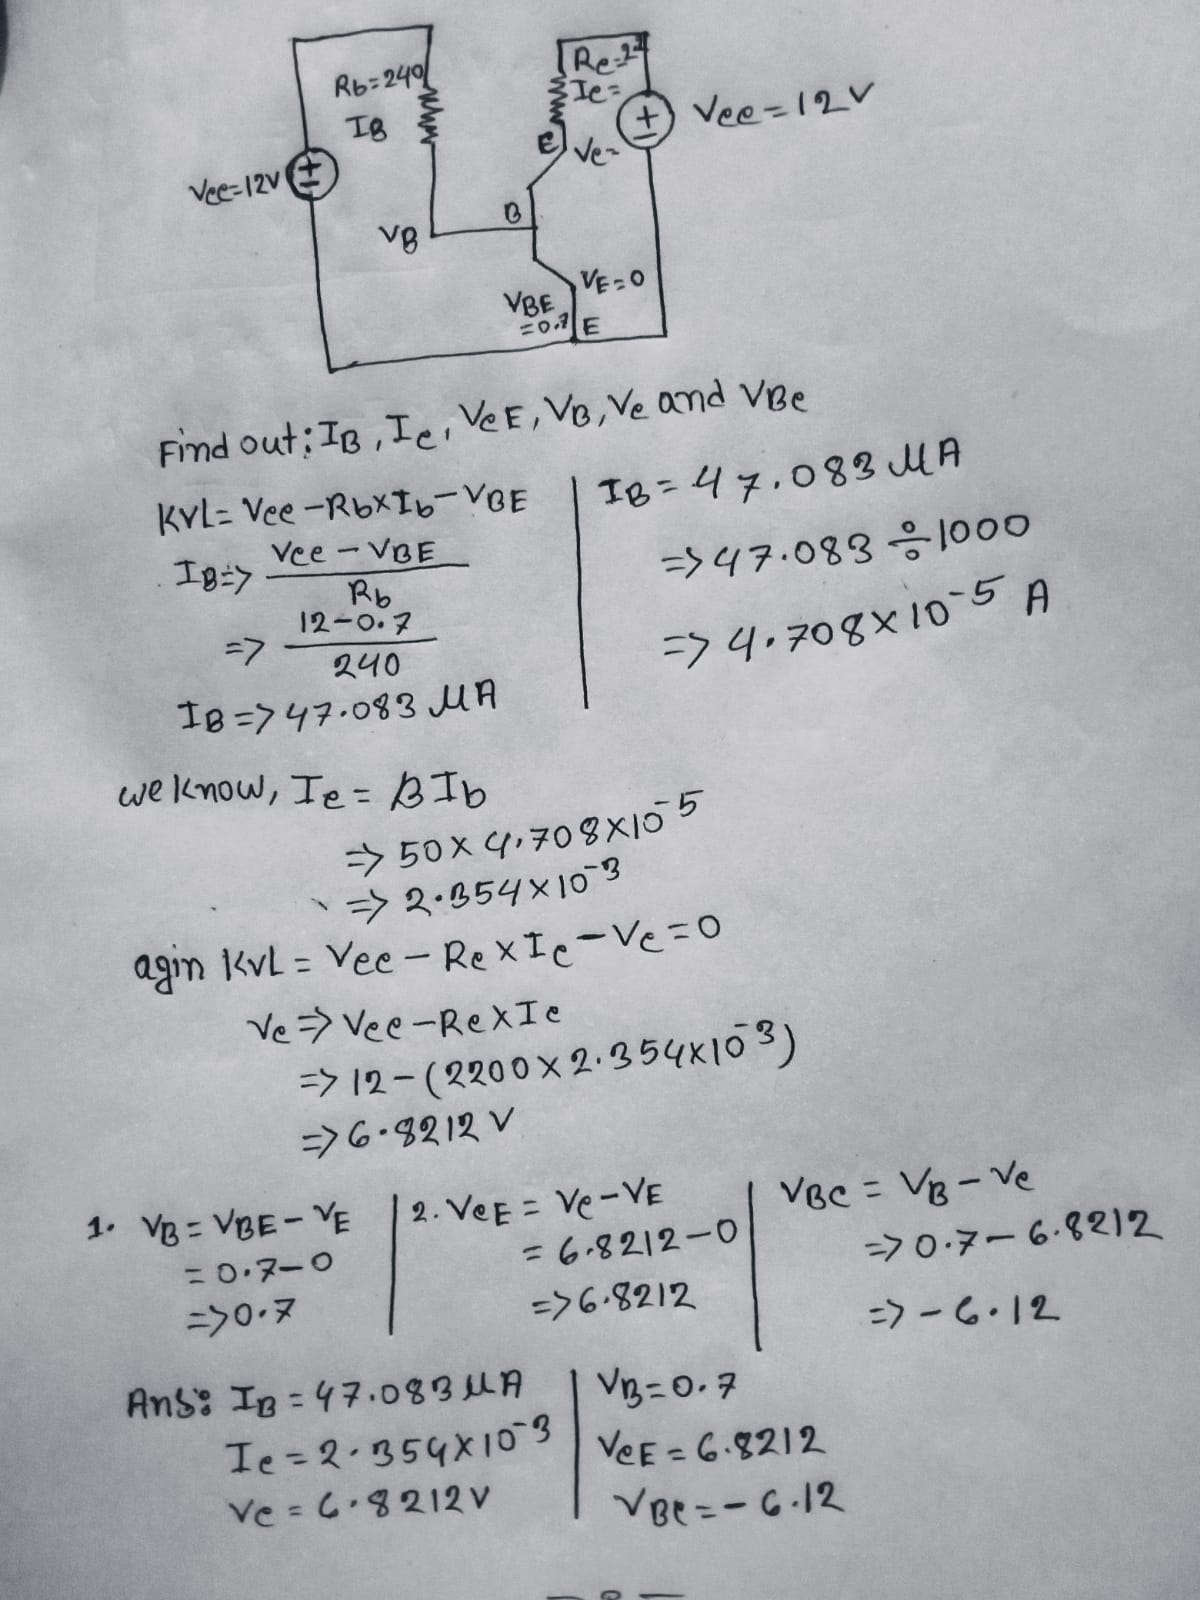 Rb=240
IB
Vcc=12V
VB
Rc=2.2
Ic=
E
Vc=
Vcc=12V
B
VBE
=0.7
VE=0
E
Find out; IB, Ic, VcE, VB, Vc and VBc
KVL= Vcc-Rb×Ib-VBE
IB=> Vcc-VBE
Rb
=> 12-0.7
240
IB=>47.083 MA
IB=47.083 MA
=>47.083÷1000
=>4.708×10-5 A
we know, Ic=βIb
=>50×4.708×10-5
=>2.354×10-3
agin KVL= Vcc-Rc×Ic-Vc=0
Vc=>Vcc-Rc×Ic
=>12-(2200×2.354×10-3)
=>6.8212 V
1. VB=VBE-VE
=0.7-0
=>0.7
2. VcE=Vc-VE
=6.8212-0
=>6.8212
VBC=VB-Vc
=>0.7-6.8212
=>-6.12
Ans: IB=47.083 MA
Ic=2.354×10-3
Vc=6.8212V
VB=0.7
VcE=6.8212
VBc=-6.12